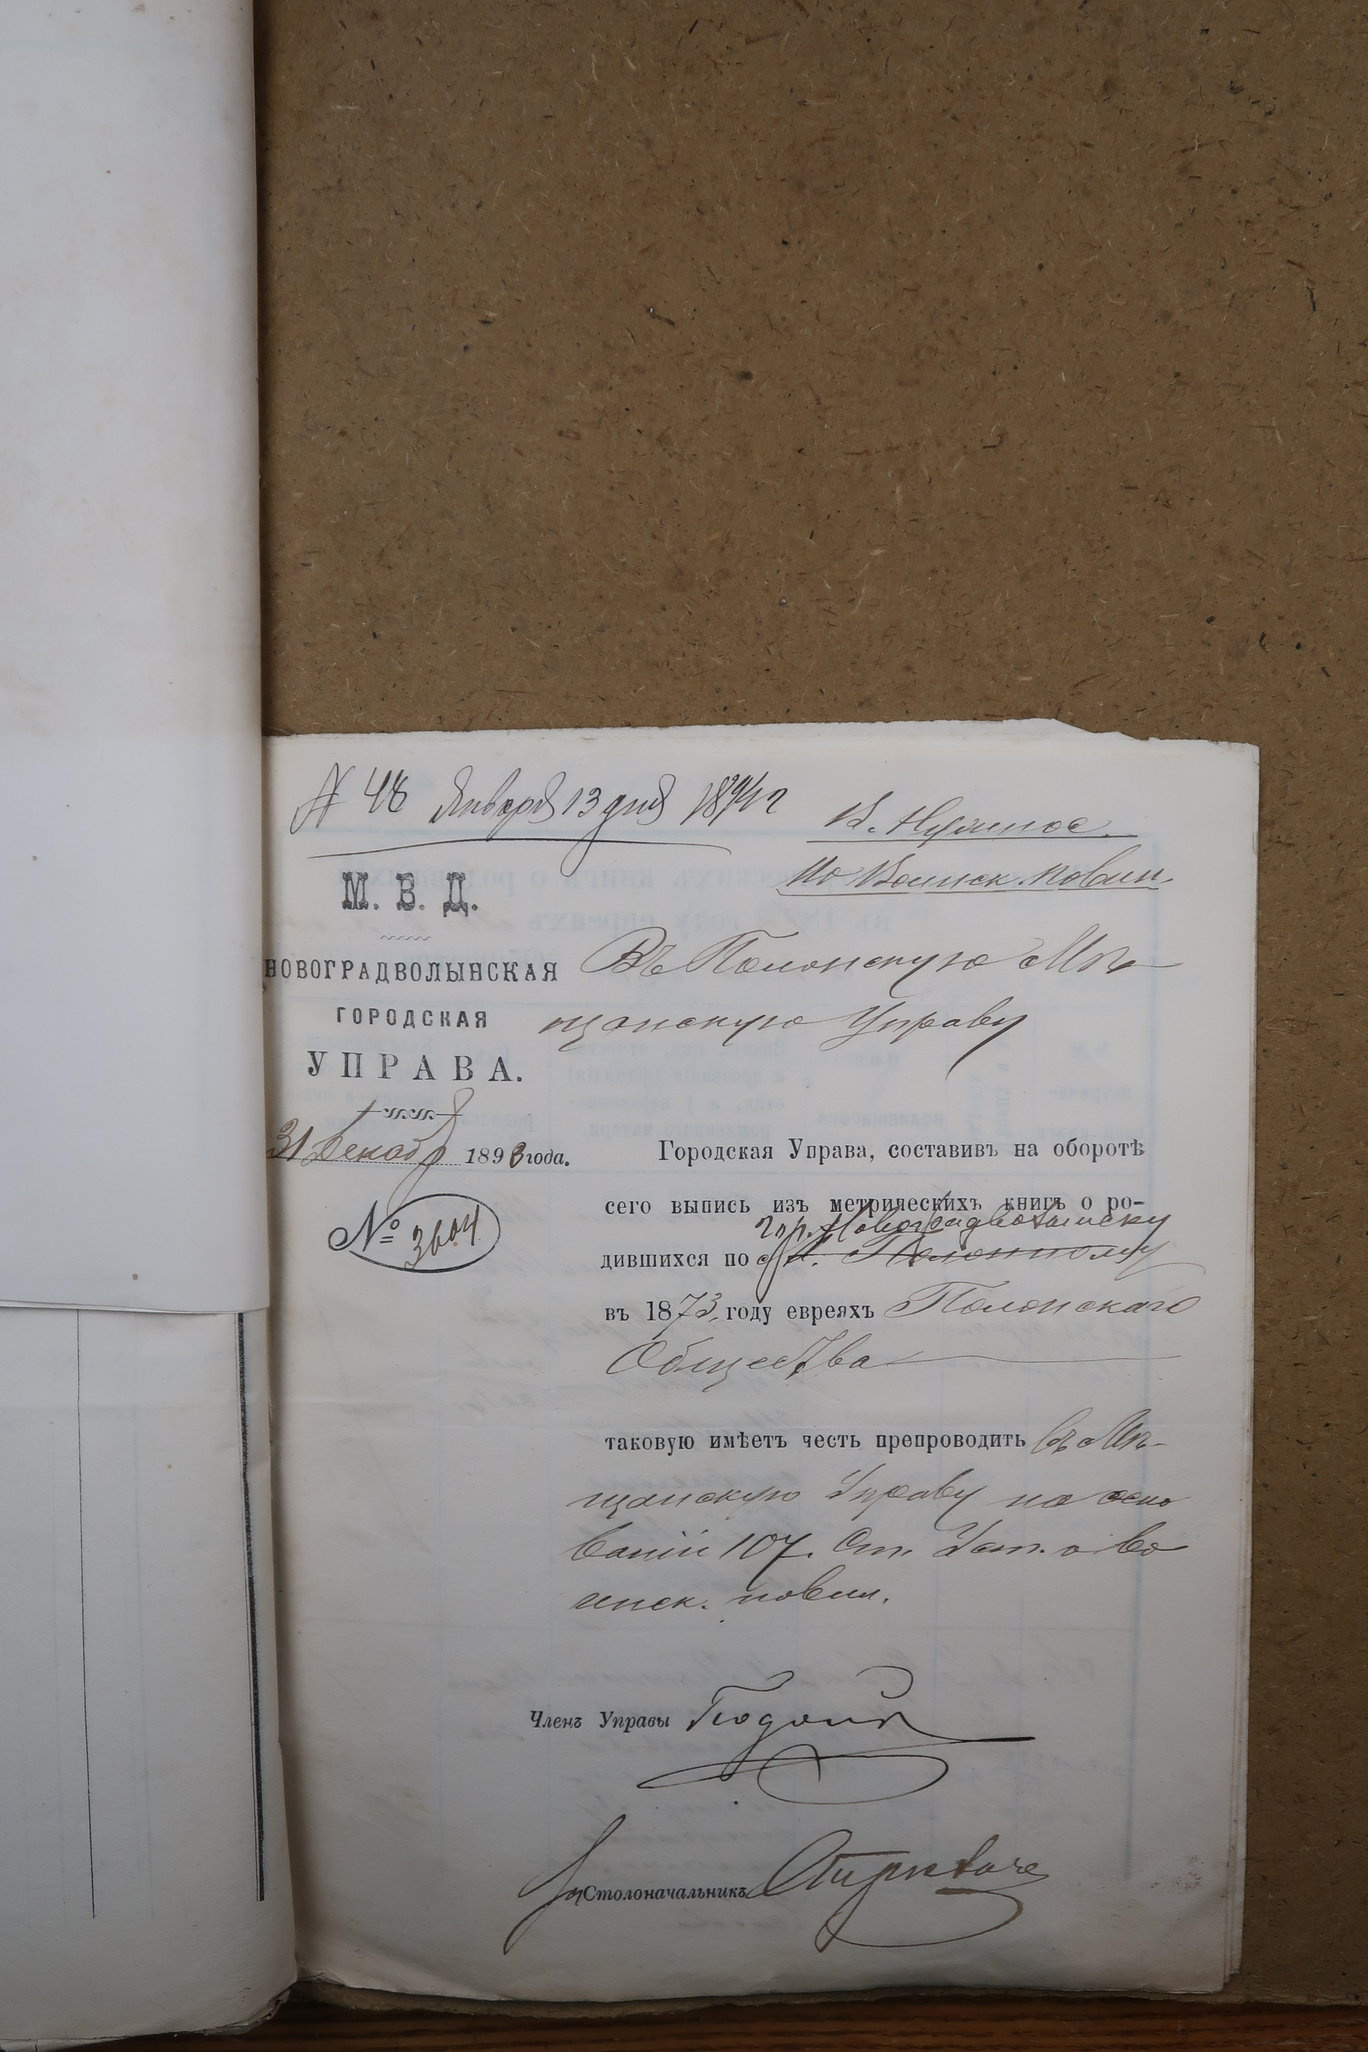 № 48 Января 13 дня 1894 г
В. Нужное.
По Воинск. повин.
М. В. Д.
НОВОГРАДВОЛЫНСКАЯ
ГОРОДСКАЯ
УПРАВА.
31 Декабр 1893 года.
№ 3604
Въ Полонскую Мѣ-
щанскую Управу
Городская Управа, составивъ на оборотѣ
сего выпись изъ метрическихъ книгъ о ро-
гор. Новоградволынску
дившихся по м. Полонному
въ 1873 году евреяхъ Полонскаго
Общества
таковую имѣетъ честь препроводить въ Мѣ-
щанскую Управу на осно
ваніи 107. Ст. Уст. о во
инск. повин.
Членъ Управы
Столоначальникъ